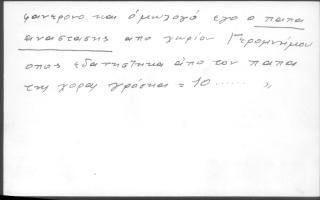 φανερονο και ὁμωλογό εγο ο παπα
αναστασης απο χωρίον Γερομνήμου
οπος εδανηστηκα ἀπο τον παπα
της χορας γρόσηα = 10 ...... »